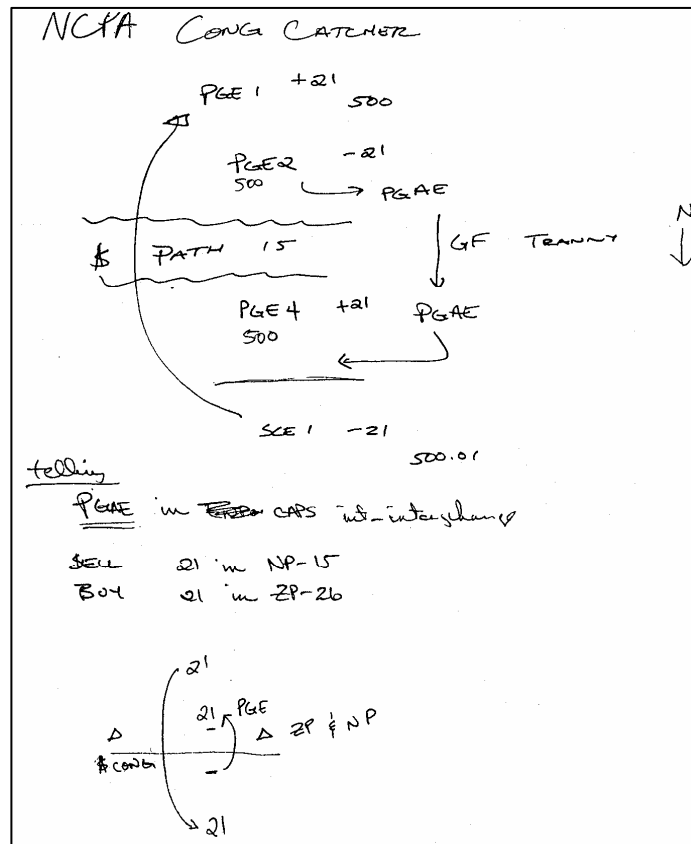 NCPA CONG CATCHER
PGE 1 +21
500
PGE2 -21
500
PGAE
N
$ PATH 15
GF TRANNY
PGE 4 +21 PGAE
500
SCE 1 -21
500.01
telling
PGAE in CAPS int-interchange
SELL 21 in NP-15
BUY 21 in ZP-26
21
21 PGE
Δ Δ ZP & NP
$ CONG
21